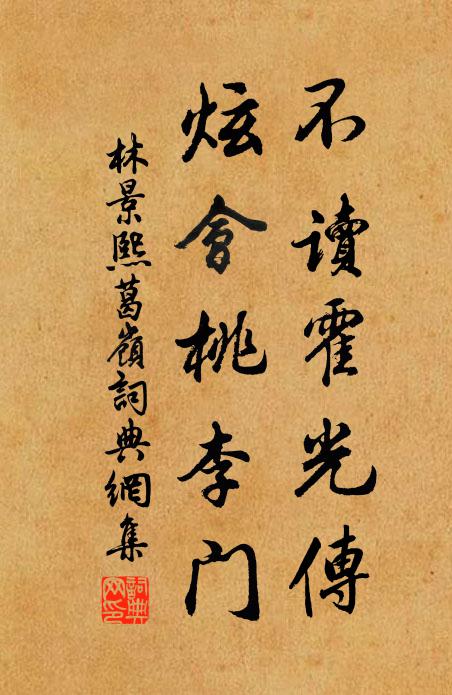 不讀霍光傳
炫會桃李門
林景熙葛嶺詞典網集
詞典网印